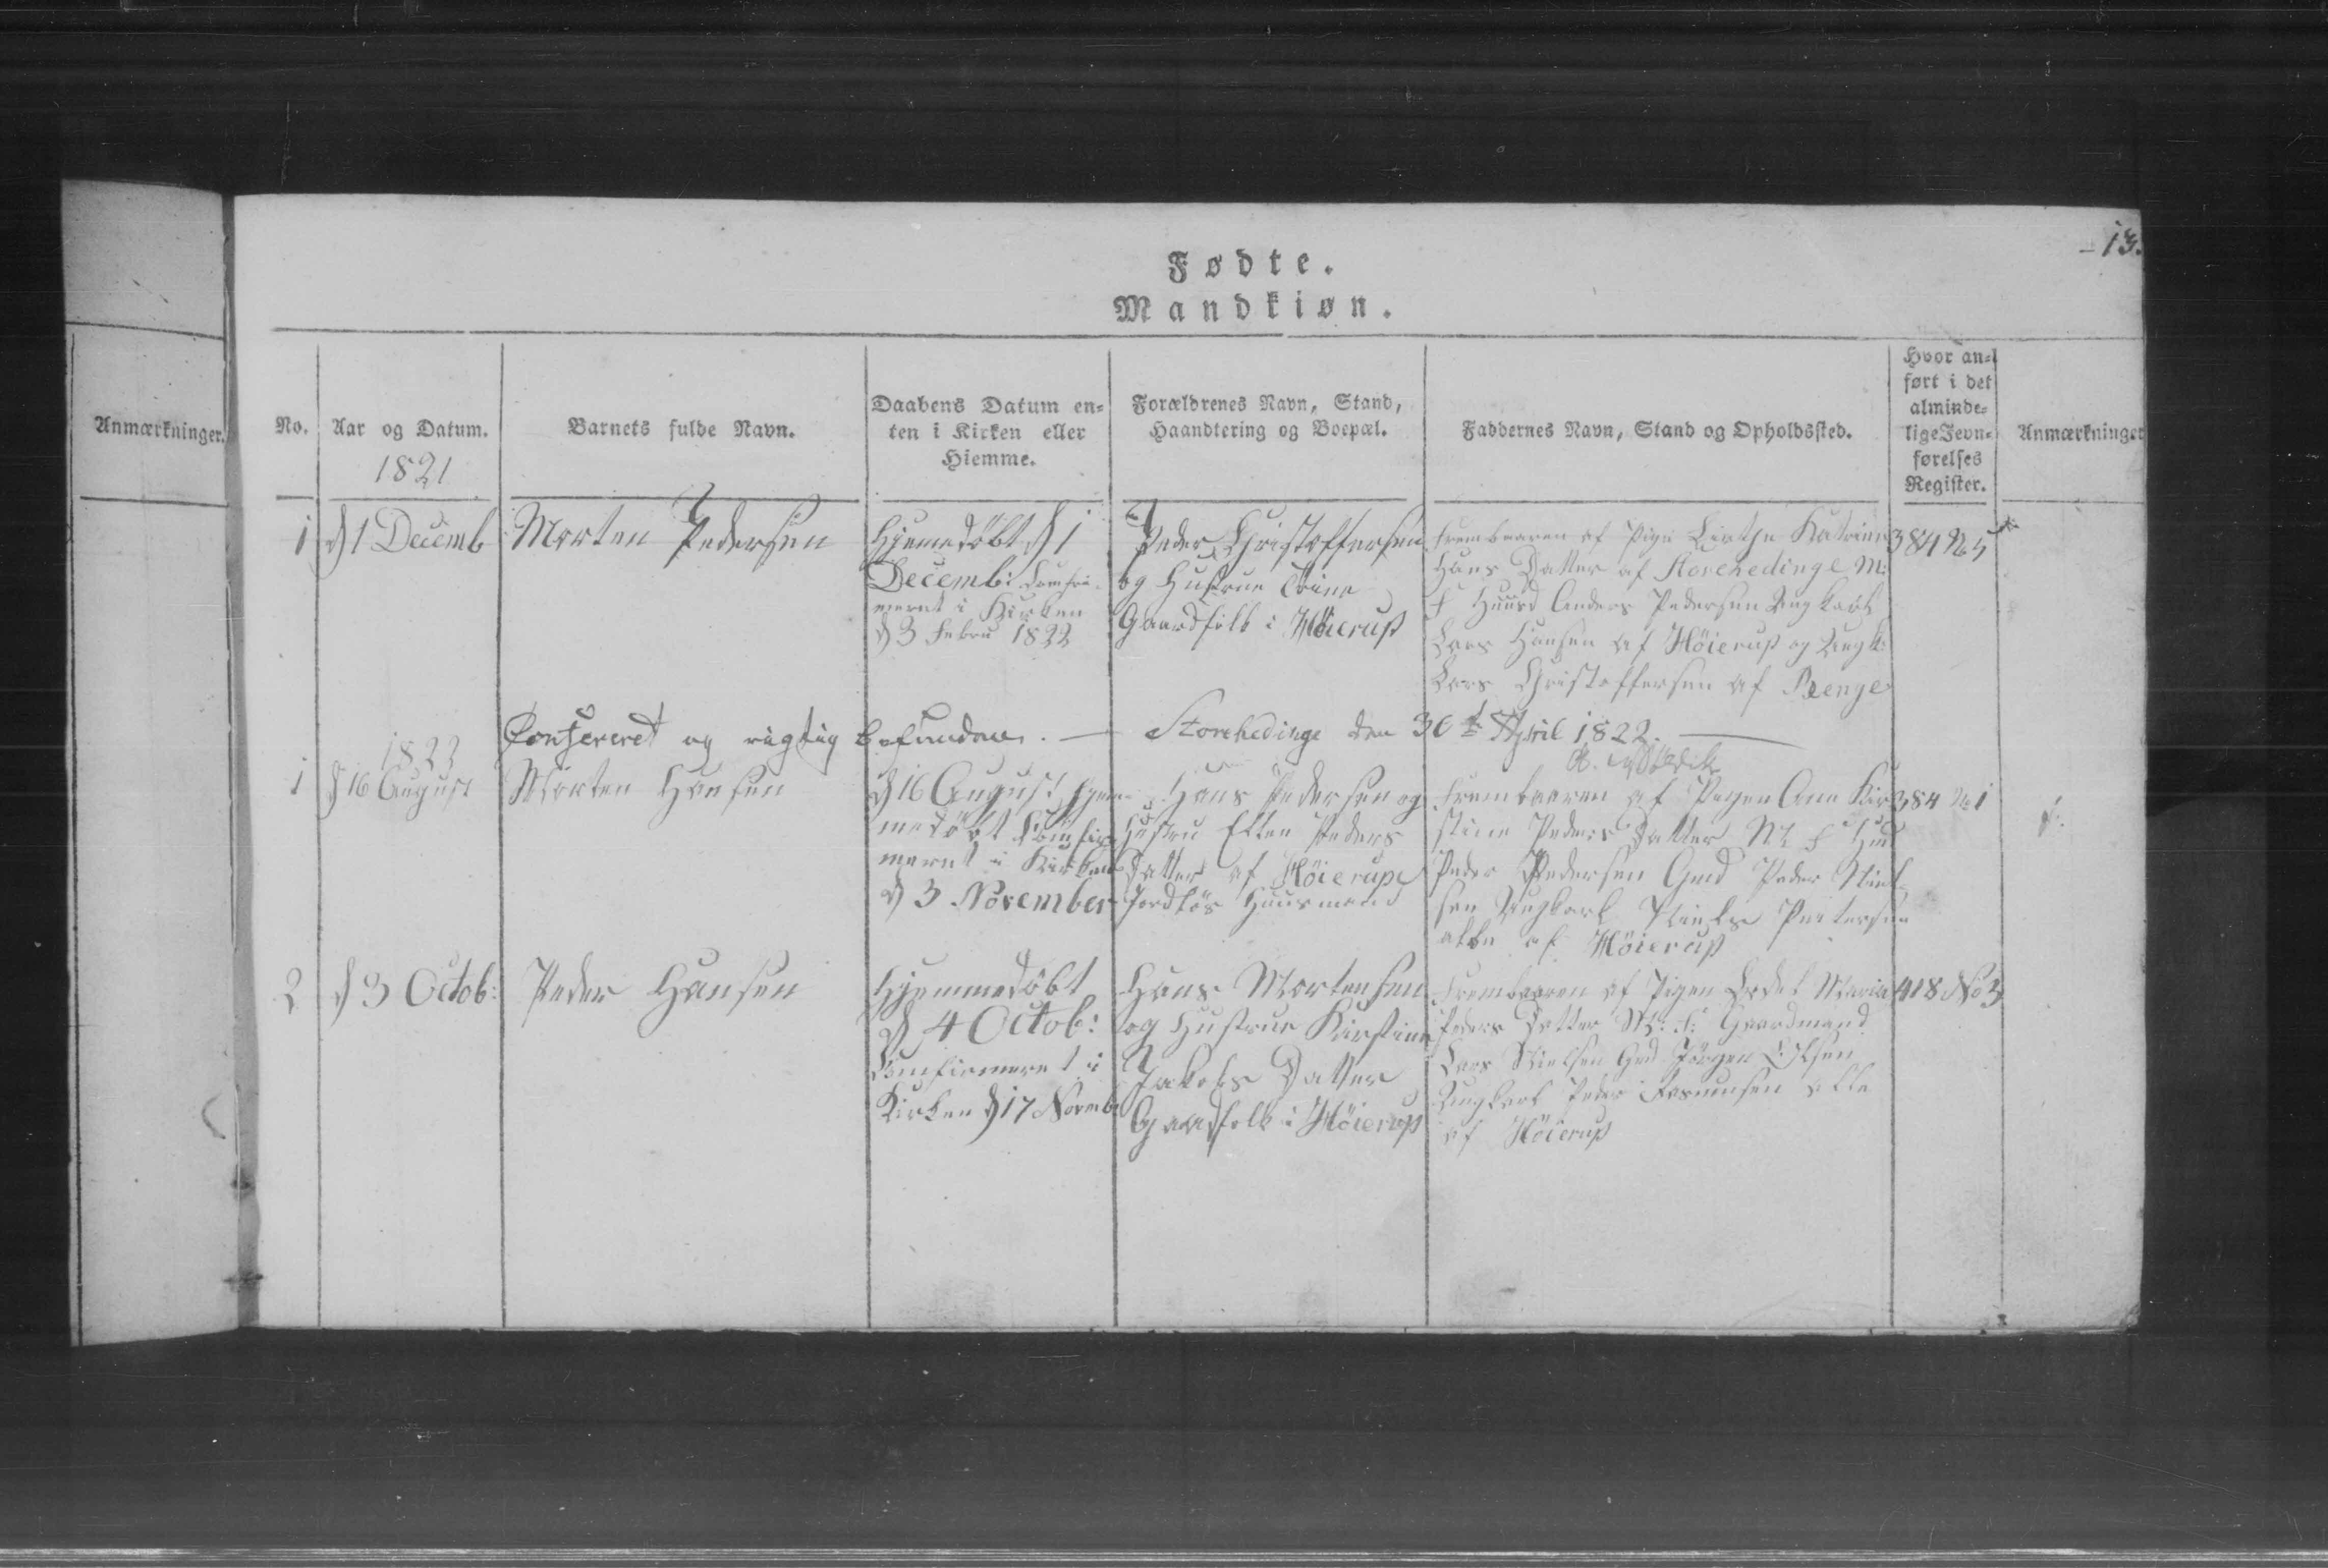 13.
Fødte.
Mandkiøn.
Anmærkninger.
No.
Aar og Datum.
1821
Barnets fulde Navn.
Daabens Datum en=
ten i Kirken eller
Hiemme.
Forældrenes Navn, Stand,
Haandtering og Boepæl.
Faddernes Navn, Stand og Opholdssted.
Hvor an=
ført i det
alminde=
lige Jevn=
førelses
Register.
Anmærkninger
1
d 1 Decemb
Morten Pedersen
Hjemedöbt d 1
Decemb:
meret i Kirken
d 3 Febru 1822
Peder Christoffersen
og Hustrue Trine
Gaardfolk i Höierup
Frembaaren af Pige Katrine
Hans Datter af Storehedinge M:
F Huusd Anders Pedersen Ungkarl
Lars Hansen af Höierup og Ungk:
Lars Christoffersen af Renge
384 No 5
Confereret og rigtig befunden. — Storehedinge den 30te April 1822.
1822
1
d 16 August
Morten Hansen
d 16 August hjem-
medöbt Confir
meret i Kirken
d 3 November
Hans Pedersen og
Hustru Ellen Peders
Datter af Höierup
Jordlös Huusmand
Frembaaren af Pigen Ane Kir
stine Peders Datter M F Hmd
Peder Pedersen Gmd Peder Niel
sen Ungkarl Niels Peitersen
alle af Höierup
384 No 1
2
d 3 Octob:
Peder Hansen
Hjemmedöbt
d 4 Octob:
Confirmeret i
Kirken d 17 Novemb
Hans Mortensen
og Hustrue Kirstine
Jakobs Datter
Gaardfolk i Höierup
Frembaaren af Pigen Maria
Peders Datter M: F: Gaardmand
Lars Nielsen Gmd Jörgen Olsen
Ungkarl Peder Rasmusen alle
af Höierup
418 No 3